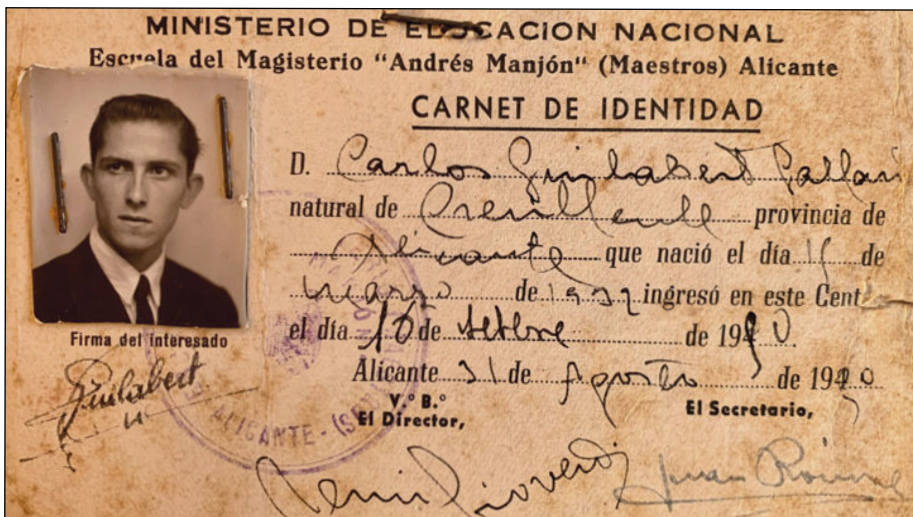 MINISTERIO DE EDUCACION NACIONAL
Escuela del Magisterio "Andrés Manjón" (Maestros) Alicante
CARNET DE IDENTIDAD
D. Carlos Guilabert
natural de Crevillente provincia de
Alicante que nació el día de
Marzo de ingresó en este Cent
el día 16 de de 19
Alicante 31 de Agosto de 19
V.º B.º
El Director,
El Secretario,
Firma del interesado
Guilabert
ALICANTE
Juan